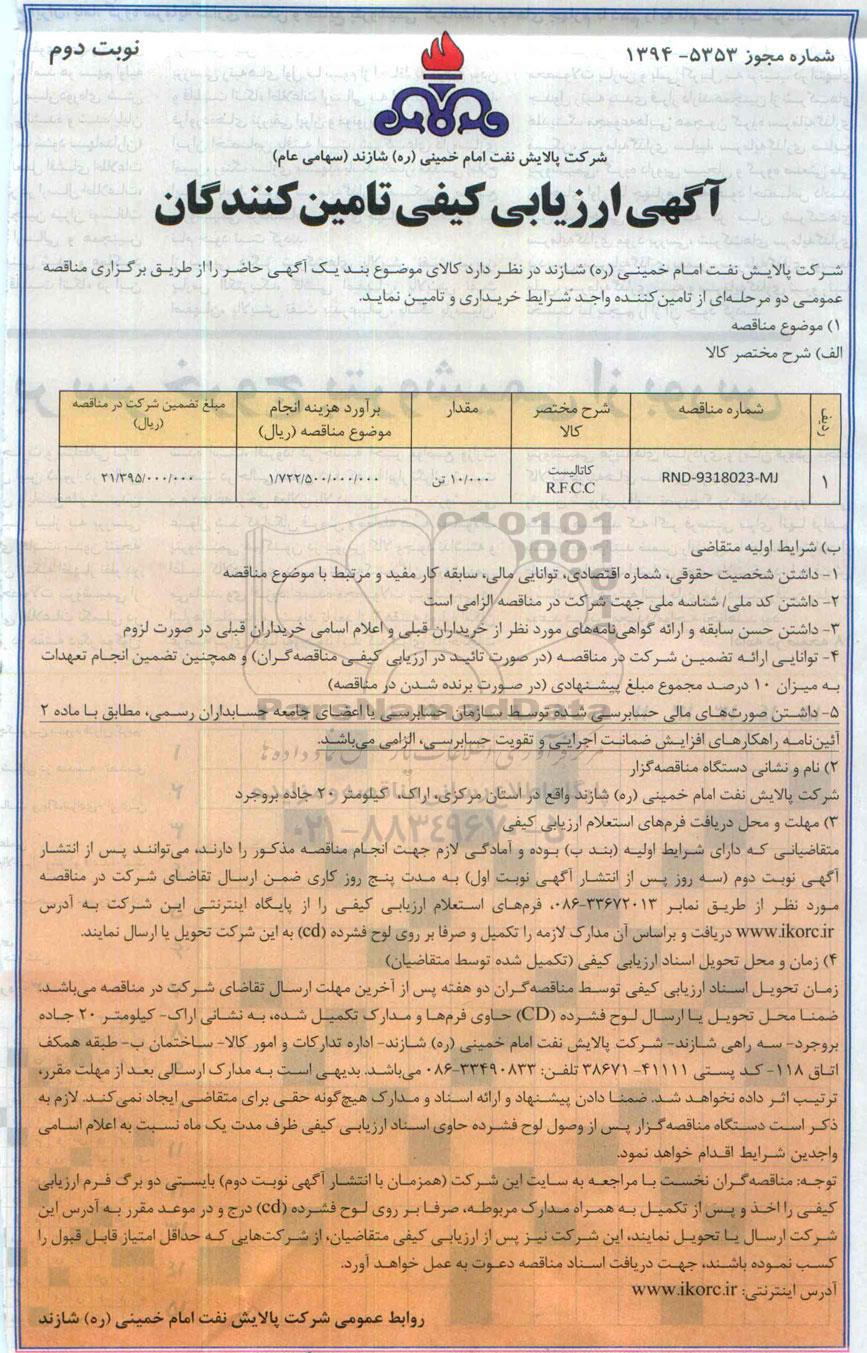 شماره مجوز ۵۳۵۳- ۱۳۹۴
نوبت دوم
شرکت پالایش نفت امام خمینی (ره) شازند (سهامی عام)
آگهی ارزیابی کیفی تامین‌کنندگان
شرکت پالایش نفت امام خمینی (ره) شازند در نظر دارد کالای موضوع بند یک آگهی حاضر را از طریق برگزاری مناقصه
عمومی دو مرحله‌ای از تامین‌کننده واجد شرایط خریداری و تامین نماید.
۱) موضوع مناقصه
الف) شرح مختصر کالا
ردیف | شماره مناقصه | شرح مختصر کالا | مقدار | برآورد هزینه انجام موضوع مناقصه (ریال) | مبلغ تضمین شرکت در مناقصه (ریال)
۱ | RND-9318023-MJ | کاتالیست R.F.C.C | ۱۰/۰۰۰ تن | ۱/۷۲۲/۵۰۰/۰۰۰/۰۰۰ | ۲۱/۳۹۵/۰۰۰/۰۰۰
ب) شرایط اولیه متقاضی
۱- داشتن شخصیت حقوقی، شماره اقتصادی، توانایی مالی، سابقه کار مفید و مرتبط با موضوع مناقصه
۲- داشتن کد ملی/ شناسه ملی جهت شرکت در مناقصه الزامی است
۳- داشتن حسن سابقه و ارائه گواهی‌نامه‌های مورد نظر از خریداران قبلی و اعلام اسامی خریداران قبلی در صورت لزوم
۴- توانایی ارائه تضمین شرکت در مناقصه (در صورت تائید در ارزیابی کیفی مناقصه‌گران) و همچنین تضمین انجام تعهدات
به میزان ۱۰ درصد مجموع مبلغ پیشنهادی (در صورت برنده شدن در مناقصه)
۵- داشتن صورت‌های مالی حسابرسی شده توسط سازمان حسابرسی یا اعضای جامعه حسابداران رسمی، مطابق با ماده ۲
آئین‌نامه راهکارهای افزایش ضمانت اجرایی و تقویت حسابرسی، الزامی می‌باشد.
۲) نام و نشانی دستگاه مناقصه‌گزار
شرکت پالایش نفت امام خمینی (ره) شازند واقع در استان مرکزی، اراک، کیلومتر ۲۰ جاده بروجرد
۳) مهلت و محل دریافت فرم‌های استعلام ارزیابی کیفی
متقاضیانی که دارای شرایط اولیه (بند ب) بوده و آمادگی لازم جهت انجام مناقصه مذکور را دارند، می‌توانند پس از انتشار
آگهی نوبت دوم (سه روز پس از انتشار آگهی نوبت اول) به مدت پنج روز کاری ضمن ارسال تقاضای شرکت در مناقصه
مورد نظر از طریق نمابر ۳۳۶۷۲۰۱۳-۰۸۶، فرم‌های استعلام ارزیابی کیفی را از پایگاه اینترنتی این شرکت به آدرس
www.ikorc.ir دریافت و براساس آن مدارک لازمه را تکمیل و صرفا بر روی لوح فشرده (cd) به این شرکت تحویل یا ارسال نمایند.
۴) زمان و محل تحویل اسناد ارزیابی کیفی (تکمیل شده توسط متقاضیان)
زمان تحویل اسناد ارزیابی کیفی توسط مناقصه‌گران دو هفته پس از آخرین مهلت ارسال تقاضای شرکت در مناقصه می‌باشد.
ضمنا محل تحویل یا ارسال لوح فشرده (CD) حاوی فرم‌ها و مدارک تکمیل شده، به نشانی اراک- کیلومتر ۲۰ جاده
بروجرد- سه راهی شازند- شرکت پالایش نفت امام خمینی (ره) شازند- اداره تدارکات و امور کالا- ساختمان ب- طبقه همکف
اتاق ۱۱۸- کد پستی ۴۱۱۱۱- ۳۸۶۷۱ تلفن: ۳۳۴۹۰۸۳۳-۰۸۶ می‌باشد. بدیهی است به مدارک ارسالی بعد از مهلت مقرر،
ترتیب اثر داده نخواهد شد. ضمنا دادن پیشنهاد و ارائه اسناد و مدارک هیچ‌گونه حقی برای متقاضی ایجاد نمی‌کند. لازم به
ذکر است دستگاه مناقصه‌گزار پس از وصول لوح فشرده حاوی اسناد ارزیابی کیفی ظرف مدت یک ماه نسبت به اعلام اسامی
واجدین شرایط اقدام خواهد نمود.
توجه: مناقصه‌گران نخست با مراجعه به سایت این شرکت (همزمان با انتشار آگهی نوبت دوم) بایستی دو برگ فرم ارزیابی
کیفی را اخذ و پس از تکمیل به همراه مدارک مربوطه، صرفا بر روی لوح فشرده (cd) درج و در موعد مقرر به آدرس این
شرکت ارسال یا تحویل نمایند، این شرکت نیز پس از ارزیابی کیفی متقاضیان، از شرکت‌هایی که حداقل امتیاز قابل قبول را
کسب نموده باشند، جهت دریافت اسناد مناقصه دعوت به عمل خواهد آورد.
آدرس اینترنتی: www.ikorc.ir
روابط عمومی شرکت پالایش نفت امام خمینی (ره) شازند
ParsNamadData
۰۲۱-۸۸۳۴۹۶۷۰